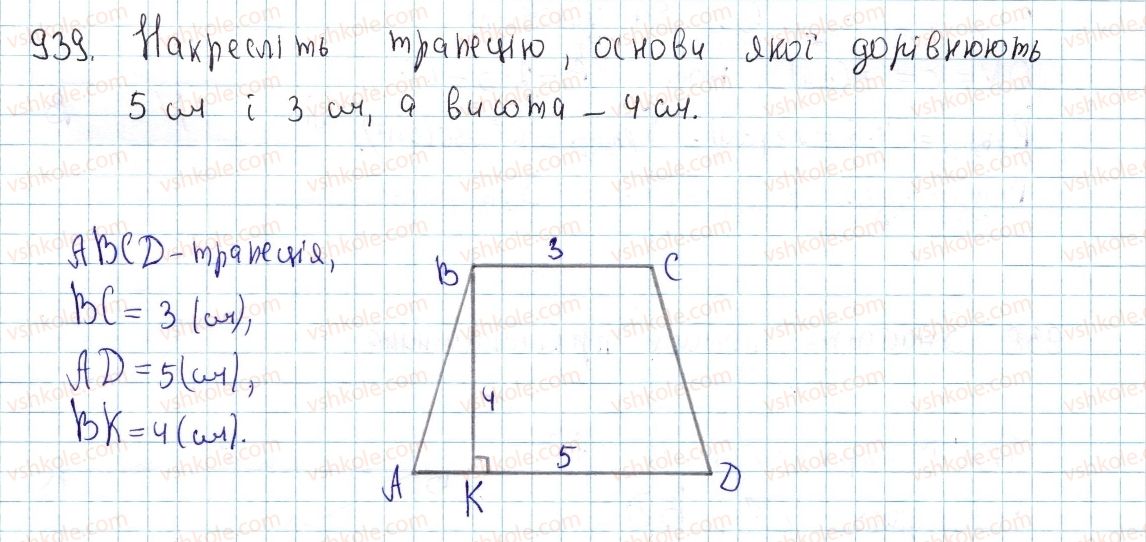 939. Накресліть трапецію, основи якої дорівнюють
5 см і 3 см, а висота – 4 см.
ABCD – трапеція,
BC = 3 (см),
AD = 5 (см),
BK = 4 (см).
B 3 C
4
A K 5 D
vshkole.com